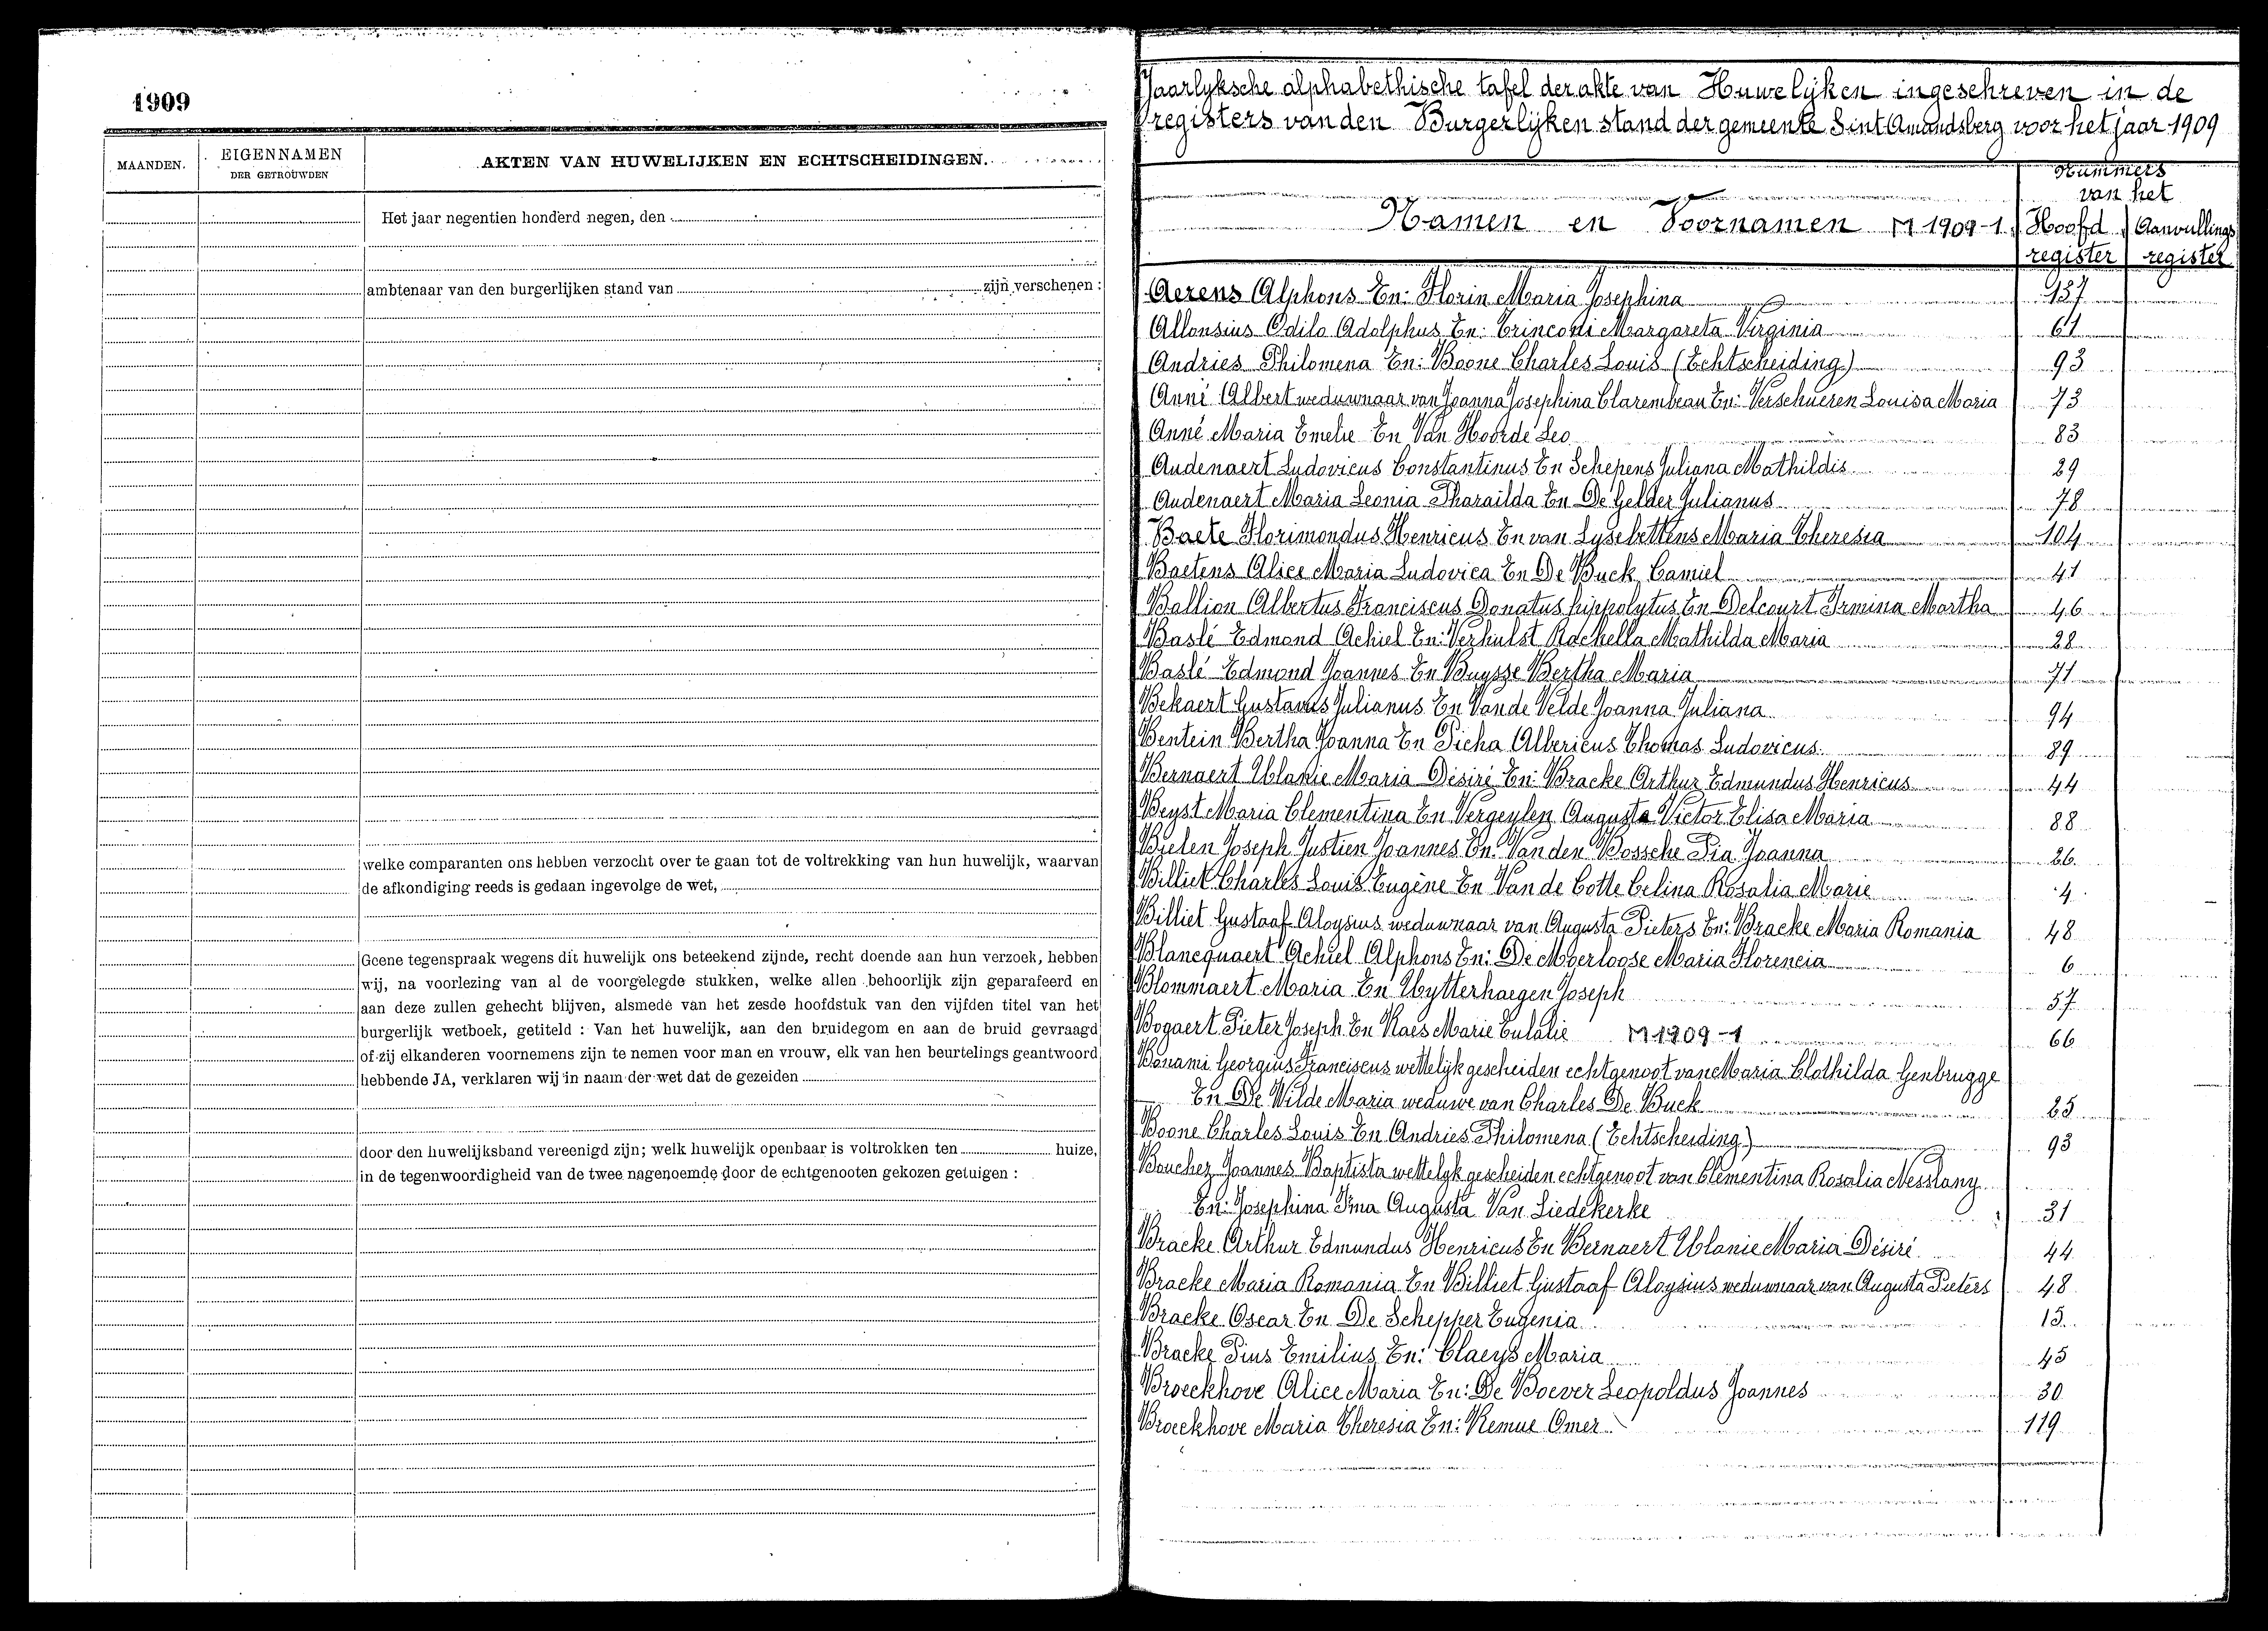 1909
MAANDEN.
EIGENNAMEN
DER GETROUWDEN
AKTEN VAN HUWELIJKEN EN ECHTSCHEIDINGEN.
Het jaar negentien honderd negen, den
ambtenaar van den burgerlijken stand van zijn verschenen :
welke comparanten ons hebben verzocht over te gaan tot de voltrekking van hun huwelijk, waarvan
de afkondiging reeds is gedaan ingevolge de wet,
Geene tegenspraak wegens dit huwelijk ons beteekend zijnde, recht doende aan hun verzoek, hebben
wij, na voorlezing van al de voorgelegde stukken, welke allen behoorlijk zijn geparafeerd en
aan deze zullen gehecht blijven, alsmede van het zesde hoofdstuk van den vijfden titel van het
burgerlijk wetboek, getiteld : Van het huwelijk, aan den bruidegom en aan de bruid gevraagd
of zij elkanderen voornemens zijn te nemen voor man en vrouw, elk van hen beurtelings geantwoord
hebbende JA, verklaren wij in naam der wet dat de gezeiden
door den huwelijksband vereenigd zijn; welk huwelijk openbaar is voltrokken ten huize,
in de tegenwoordigheid van de twee nagenoemde door de echtgenooten gekozen getuigen :
Jaarlyksche alphabethische tafel der akte van Huwelijken ingeschreven in de
registers van den Burgerlijken stand der gemeente Sint Amandsberg voor het jaar 1909
Nummers
van het
Namen en Voornamen M 1909-1 Hoofd Aanvullings
register register
Aerens Alphons En: Florin Maria Josephina 137
Allonsius Odilo Adolphus En: Trinconi Margareta Virginia 61
Andries Philomena En: Boone Charles Louis (Echtscheiding) 93
Anné Albert weduwnaar van Joanna Josephina Clarembeau En: Verschueren Louisa Maria 73
Anné Maria Emelie En Van Hoorde Leo 83
Audenaert Ludovicus Constantinus En Schepens Juliana Mathildis 29
Audenaert Maria Leonia Pharailda En De Gelder Julianus 78
Baete Florimondus Henricus En van Lysebettens Maria Theresia 104
Baetens Alice Maria Ludovica En De Buck Camiel 41
Ballion Albertus Franciscus Donatus hippolytus En Delcourt Irmina Martha 46
Baslé Edmond Achiel En: Verhulst Rachella Mathilda Maria 28
Baslé Edmond Joannes En Buysse Bertha Maria 71
Bekaert Gustavus Julianus En Van de Velde Joanna Juliana 94
Bentein Bertha Joanna En Picha Albericus Thomas Ludovicus 89
Bernaert Ulanie Maria Désiré En: Bracke Arthur Edmundus Henricus 44
Beyst Maria Clementina En Vergeylen Augusta Victor Elisa Maria 88
Bielen Joseph Justien Joannes En: Van den Bossche Pia Joanna 26
Billiet Charles Louis Eugène En Van de Cotte Celina Rosalia Marie 4
Billiet Gustaaf Aloysius weduwnaar van Augusta Pieters En: Bracke Maria Romania 48
Blancquaert Achiel Alphons En: De Moerloose Maria Florencia 6
Blommaert Maria En Uytterhaegen Joseph 57
Bogaert Pieter Joseph En Raes Marie Eulalie M 1909-1 66
Bonami Georgius Franciscus wettelijk gescheiden echtgenoot van Maria Clothilda Genbrugge
En De Wilde Maria weduwe van Charles De Buck 25
Boone Charles Louis En Andries Philomena (Echtscheiding) 93
Bouchez Joannes Baptista wettelyk gescheiden echtgenoot van Clementina Rosalia Messlany
En: Josephina Irma Augusta Van Liedekerke 31
Bracke Arthur Edmundus Henricus En Bernaert Ulanie Maria Désiré 44
Bracke Maria Romania En Billiet Gustaaf Aloysius weduwnaar van Augusta Pieters 48
Bracke Oscar En De Schepper Eugenia 15
Bracke Pius Emilius En: Claeys Maria 45
Broeckhove Alice Maria En: De Boever Leopoldus Joannes 30
Broeckhove Maria Theresia En: Remue Omer 119